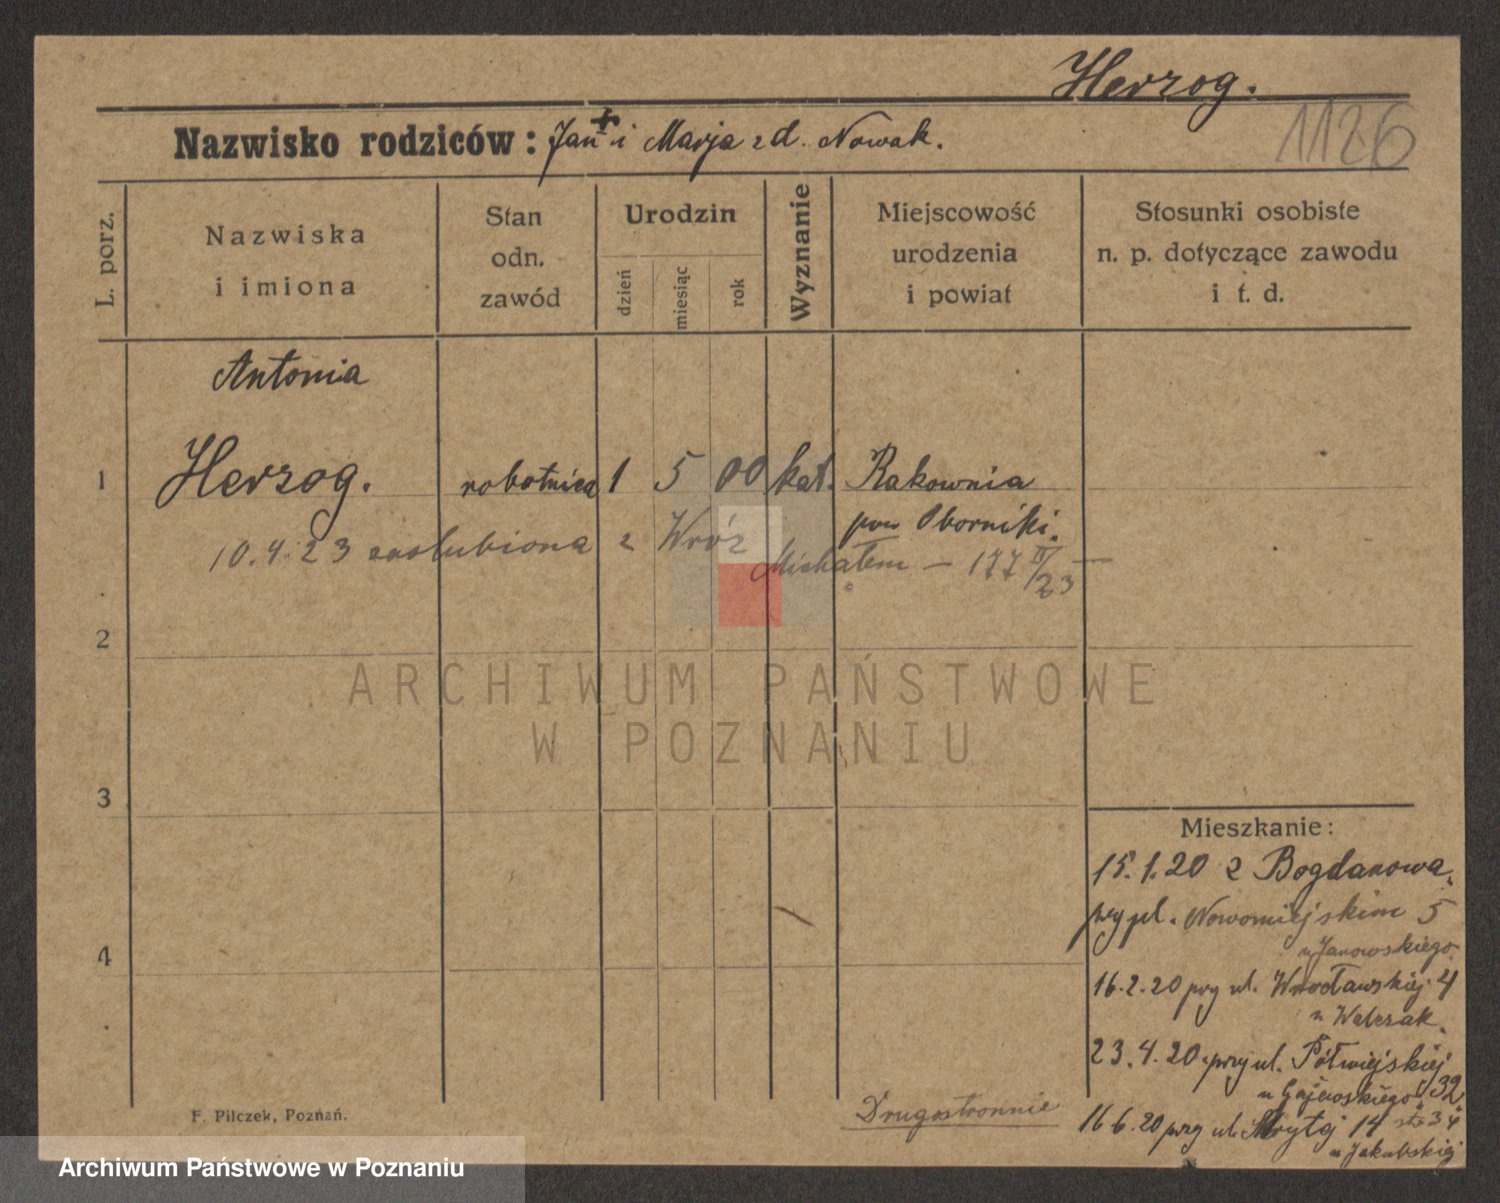 Herzog.
1126
Nazwisko rodziców: Jan + i Marja z d. Nowak.
L. porz.
Nazwiska
i imiona
Stan
odn.
zawód
Urodzin
dzień
miesiąc
rok
Wyznanie
Miejscowość
urodzenia
i powiat
Stosunki osobiste
n. p. dotyczące zawodu
i t. d.
Antonia
1 Herzog. robotnica 1 5 00 kat. Rakownia
pow Oborniki.
10.4.23 zaslubiona z Wróz
Michałem – 177 IV/23 –
2
ARCHIWUM PAŃSTWOWE
W POZNANIU
3
Mieszkanie:
15.1.20 z Bogdanowa.
przy pl. Nowomiejskim 5
u Janowskiego.
4
16.2.20 przy ul. Wrocławskiej 4
u Walczak.
23.4.20 przy ul. Półwiejskiej
u Gajewskiego, 32
16 6.20 przy ul. 14
u Jakubskiej
Drugostronnie
F. Pilczek, Poznań.
Archiwum Państwowe w Poznaniu